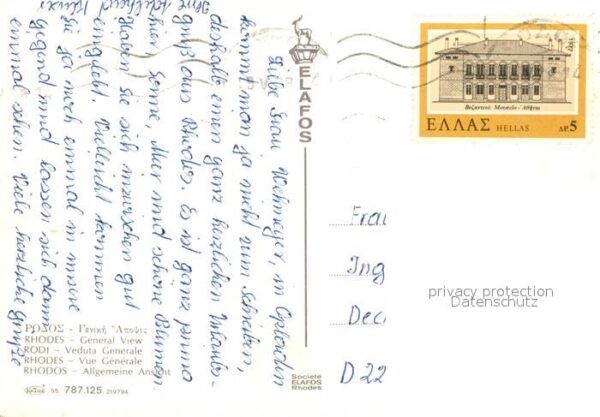 Liebe Frau Wehmeyer, in Opladen
kommt man ja nicht zum Schreiben,
deshalb einen ganz herzlichen Urlaubs-
gruß aus Rhodos. Es ist ganz prima
hier Sonne, Meer und schöne Blumen
Haben Sie sich inzwischen gut
eingelebt. Vielleicht kommen
Sie ja noch einmal in unsere
Gegend und lassen sich dann
einmal sehen. Viele herzliche Grüße
Ihre
ELAFOS
Βυζαντινό Μουσείο - Αθήναι
ΕΛΛΑΣ HELLAS ΔΡ. 5
Frau
Ing
Dec
D 22
privacy protection
Datenschutz
ΡΟΔΟΣ - Γενική Άποψις
RHODES - General View
RODI - Veduta Generale
RHODES - Vue Générale
RHODOS - Allgemeine Ansicht
55. 787.125 219794
Société
ELAFOS
Rhodes